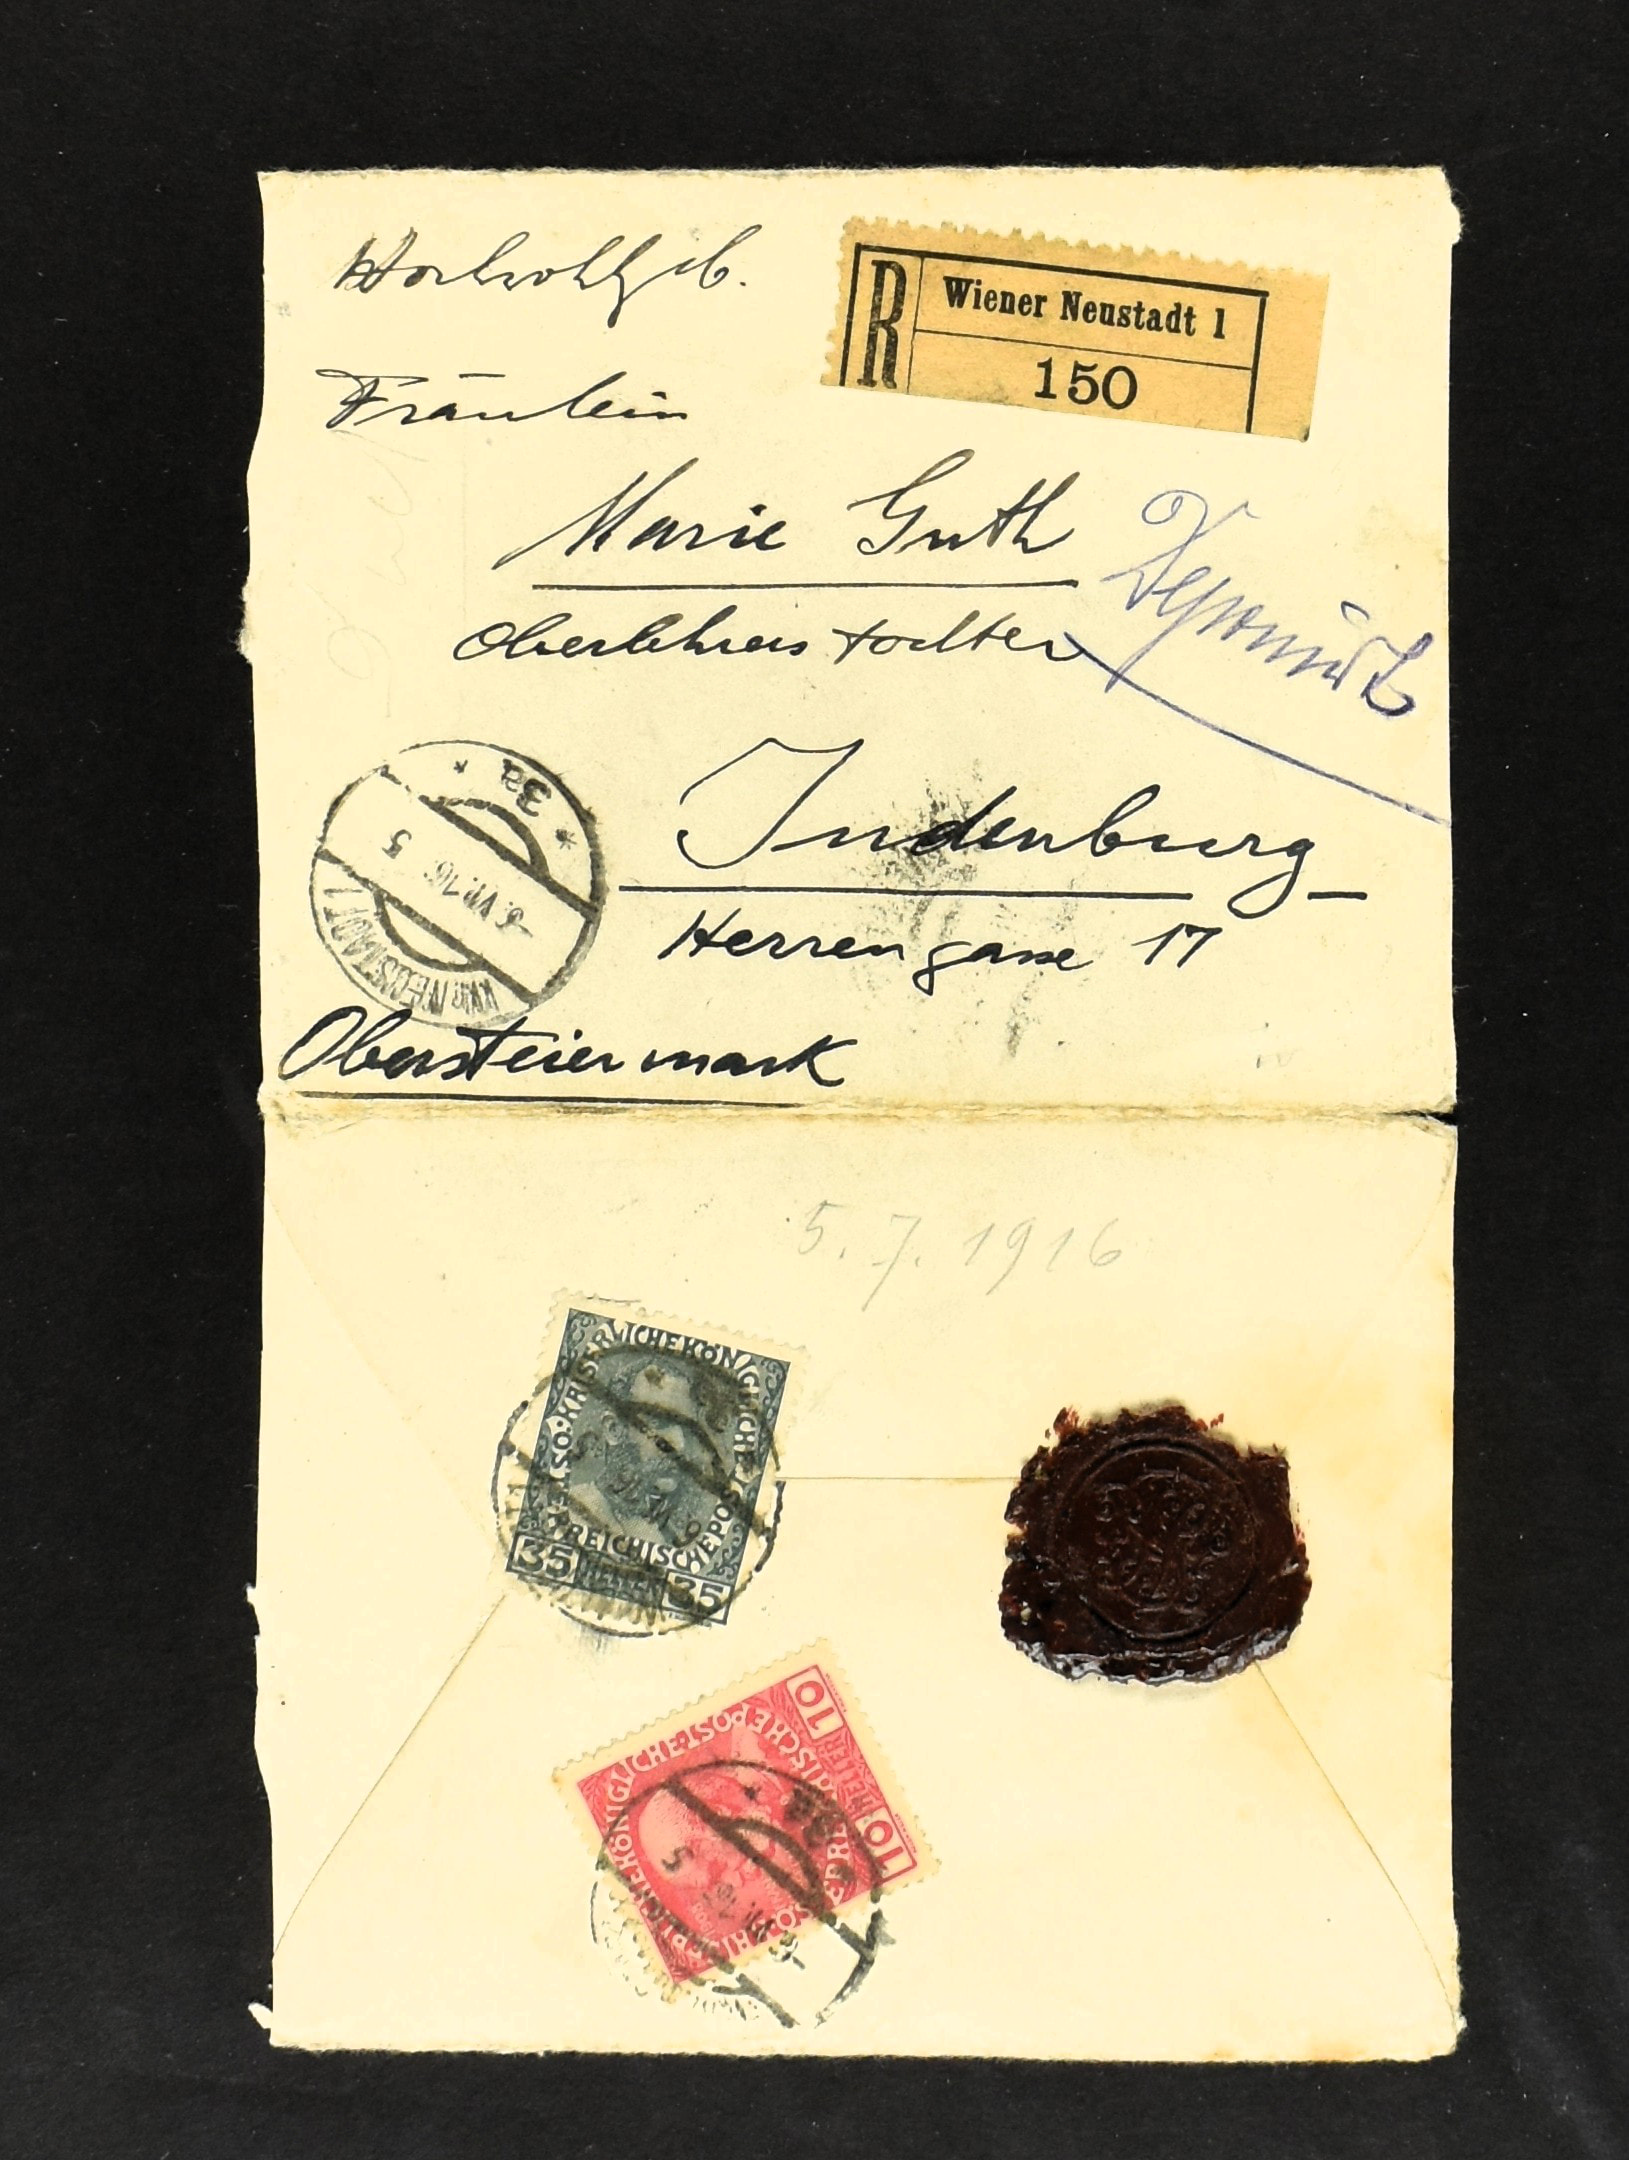 Hochwohlgeb.
R Wiener Neustadt 1
150
Fräulein
Marie Guth
Oberlehrerstochter
Judenburg
Herrengasse 17
* 3a *
5
WR. NEUSTADT 1
Obersteiermark
5. 7. 1916
KAISERLICHE KÖNIGLICHE
ÖSTERREICHISCHE POST
35 HELLER 35
KAISERLICHE KÖNIGLICHE
ÖSTERREICHISCHE POST
10 HELLER 10
3a
5